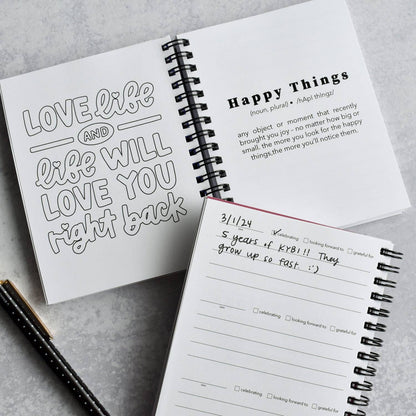 LOVE life
AND
life WILL
LOVE YOU
right back
Happy Things
(noun, plural) • /hApI thIngz/
any object or moment that recently
brought you joy - no matter how big or
small. the more you look for the happy
things,the more you'll notice them.
3/1/24 ✓celebrating □ looking forward to □ grateful for
5 years of KYB!!! They
grow up so fast :')
□ celebrating □ looking forward to □ grateful for
□ celebrating □ looking forward to □ grateful for